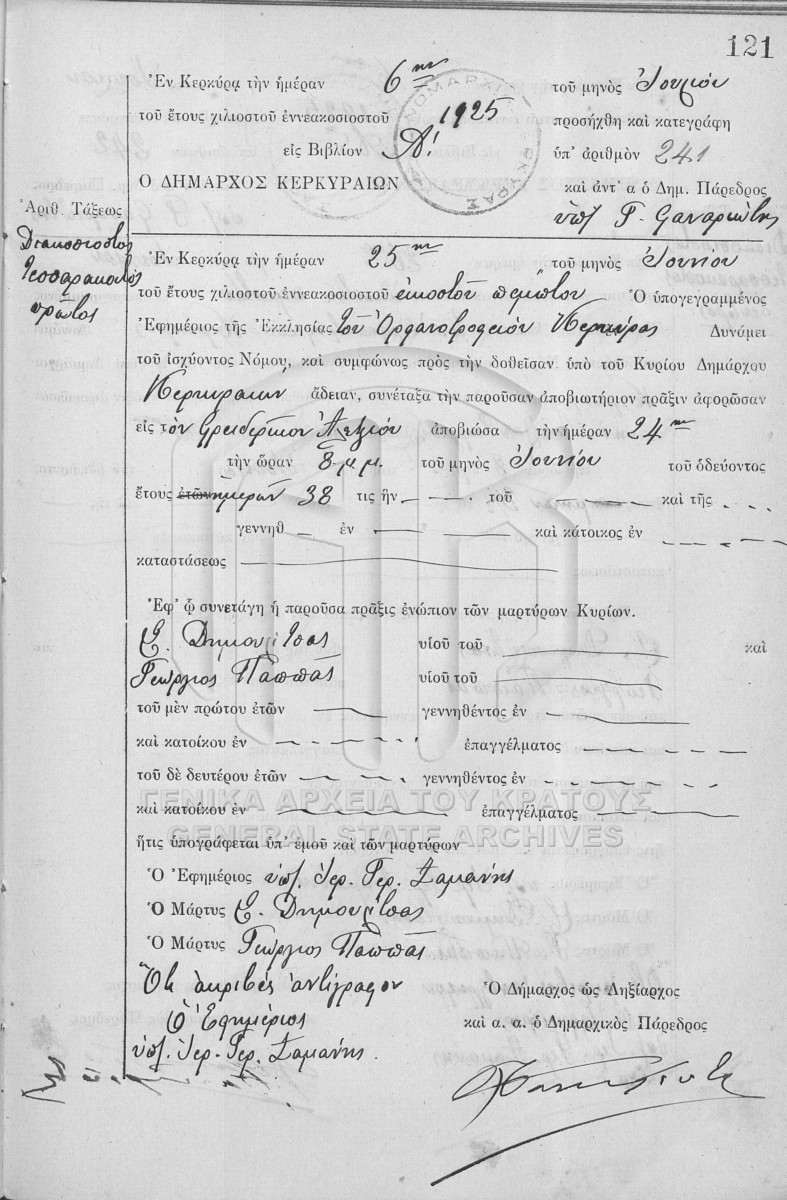 121
Ἐν Κερκύρᾳ τὴν ἡμέραν 6ην τοῦ μηνὸς Ἰουλίου
τοῦ ἔτους χιλιοστοῦ ἐννεακοσιοστοῦ 1925 προσήχθη καὶ κατεγράφη
εἰς Βιβλίον Α! ὑπ' ἀριθμὸν 241
Ο ΔΗΜΑΡΧΟΣ ΚΕΡΚΥΡΑΙΩΝ καὶ ἀντ' α ὁ Δημ. Πάρεδρος
ὑπ. Γ.
Ἀριθ. Τάξεως
Διακοσιοστὸς
τεσσαρακοστὸς
πρῶτος
Ἐν Κερκύρᾳ τὴν ἡμέραν 25ην τοῦ μηνὸς Ἰουνίου
τοῦ ἔτους χιλιοστοῦ ἐννεακοσιοστοῦ εἰκοστοῦ πέμπτου Ὁ ὑπογεγραμμένος
Ἐφημέριος τῆς Ἐκκλησίας τοῦ Ὀρφανοτροφείου Κερκύρας Δυνάμει
τοῦ ἰσχύοντος Νόμου, καὶ συμφώνως πρὸς τὴν δοθεῖσαν ὑπὸ τοῦ Κυρίου Δημάρχου
Κερκυραίων ἄδειαν, συνέταξα τὴν παροῦσαν ἀποβιωτήριον πρᾶξιν ἀφορῶσαν
εἰς τὸν Φρειδερίκον Ἀλεξίου ἀποβιώσα τὴν ἡμέραν 24ην
τὴν ὥραν 8 μ.μ. τοῦ μηνὸς Ἰουνίου τοῦ ὁδεύοντος
ἔτους ἐτῶν ἡμερῶν 38 τις ἦν τοῦ καὶ τῆς
γεννηθ ἐν καὶ κάτοικος ἐν
καταστάσεως
Ἐφ' ᾧ συνετάγη ἡ παροῦσα πρᾶξις ἐνώπιον τῶν μαρτύρων Κυρίων.
Ε. Δημουλίτσας υἱοῦ τοῦ καὶ
Γεώργιος Παππᾶς υἱοῦ τοῦ
τοῦ μὲν πρώτου ἐτῶν γεννηθέντος ἐν
καὶ κατοίκου ἐν ἐπαγγέλματος
τοῦ δὲ δευτέρου ἐτῶν γεννηθέντος ἐν
καὶ κατοίκου ἐν ἐπαγγέλματος
ΓΕΝΙΚΑ ΑΡΧΕΙΑ ΤΟΥ ΚΡΑΤΟΥΣ
GENERAL STATE ARCHIVES
ἥτις ὑπογράφεται ὑπ' ἐμοῦ καὶ τῶν μαρτύρων
Ὁ Ἐφημέριος ὑπ. Ἱερ. Γερ. Σαμάνης
Ὁ Μάρτυς Ε. Δημουλίτσας
Ὁ Μάρτυς Γεώργιος Παππᾶς
Ὅτι ἀκριβὲς ἀντίγραφον Ὁ Δήμαρχος ὡς Ληξίαρχος
Ὁ Ἐφημέριος καὶ α. α. ὁ Δημαρχικὸς Πάρεδρος
ὑπ. Ἱερ. Γερ. Σαμάνης.